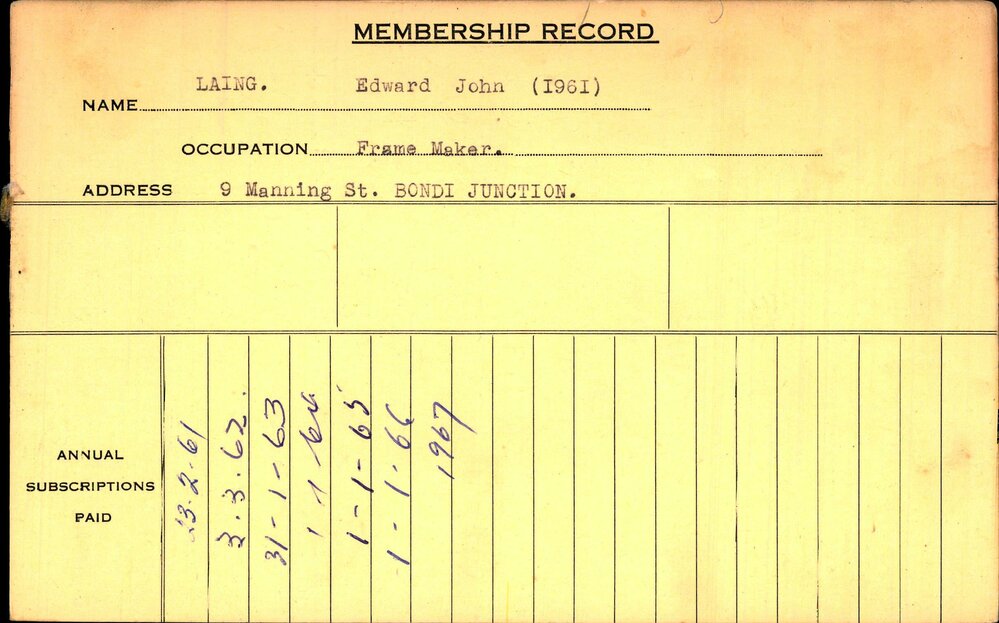 MEMBERSHIP RECORD
NAME LAING. Edward John (1961)
OCCUPATION Frame Maker.
ADDRESS 9 Manning St. BONDI JUNCTION.
ANNUAL
SUBSCRIPTIONS
PAID
23.2.61
3.3.62.
31-1-63
1 1 64
1-1-65
1-1-66
1967